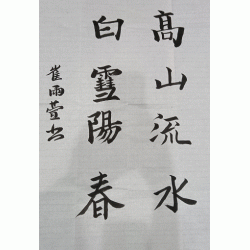 高山流水
白雪陽春
崔雨萱书